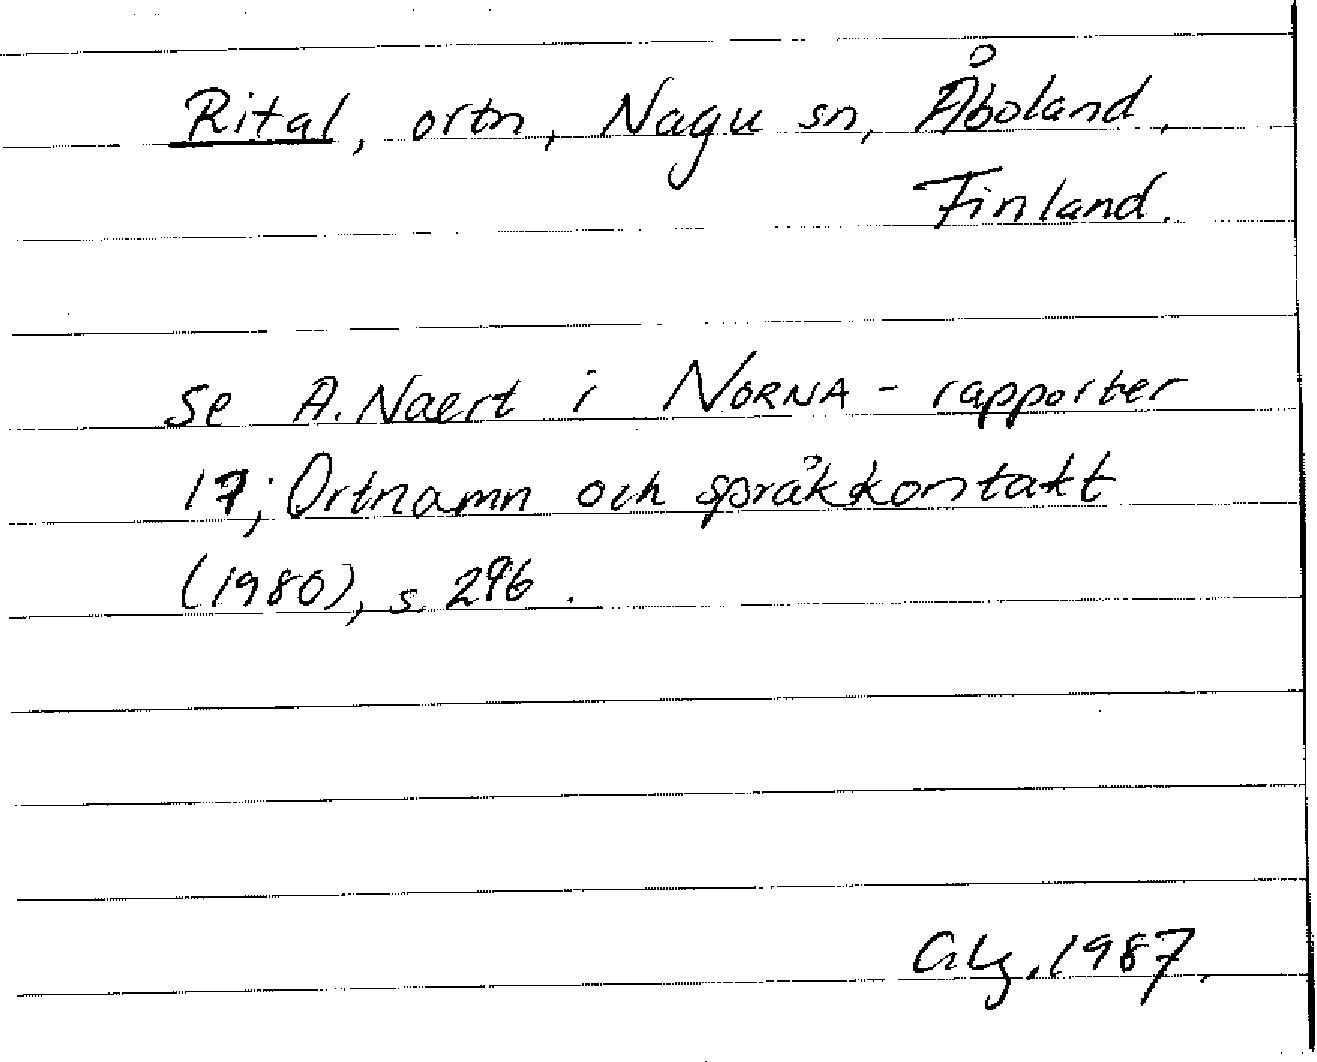 Rital, ortn, Nagu sn, Åboland,
Finland.
Se A. Naert i NORNA-rapporter
17; Ortnamn och språkkontakt
(1980), s. 296.
1987.